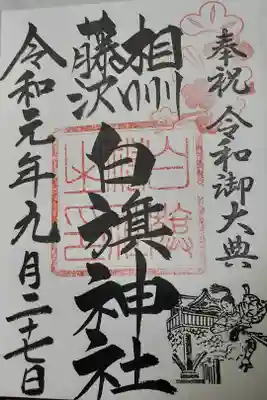 奉祝 令和御大典
相州
藤沢
白旗神社
令和元年九月二十七日